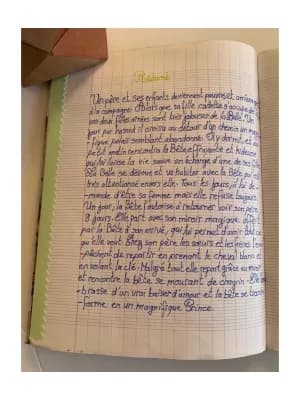 Résumé
Un père et ses enfants deviennent pauvres et
à la campagne. Alors que sa fille cadette s'occupe de
ses deux filles aînées sont très jalouses de la Belle. Un
jour par hasard il arriva au détour d'un chemin un
-fique palais semblant abandonné. Il y dormit, et au
petit matin rencontra la Bête effrayante et hideuse
qui lui laissa la vie sauve en échange d'une de ses
La Belle se dévoue et va habiter avec la Bête qui est
très attentionné envers elle. Tous les jours, il lui de
-mande d'être sa femme mais elle refuse toujours
Un jour, la Bête l'autorise à retourner voir son père
8 jours. Elle part avec son miroir magique offert
par la Bête à son arrivé, qui lui permet d'avoir tout ce
qu'elle veut. Chez son père les sœurs et les frères l'em
-pêchent de repartir en prenant le cheval blanc et
en volant la clé. Malgré tout elle repart grâce au miroir
et rencontra la bête se mourant de chagrin. Elle
-brasse d'un vrai baiser d'amour et la bête se trans
-forme en un magnifique Prince